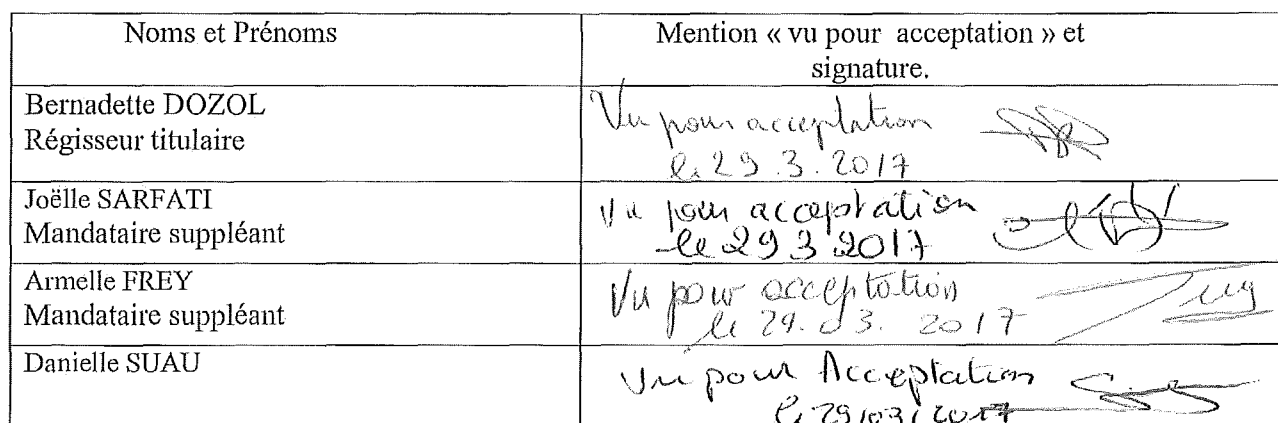 Noms et Prénoms
Mention « vu pour acceptation » et
signature.
Bernadette DOZOL
Régisseur titulaire
Vu pour acceptation
le 29.3.2017
Joëlle SARFATI
Mandataire suppléant
Vu pour acceptation
le 29 3 2017
Armelle FREY
Mandataire suppléant
Vu pour acceptation
le 29.03.2017
Danielle SUAU
Vu pour Acceptation
le 29/03/2017